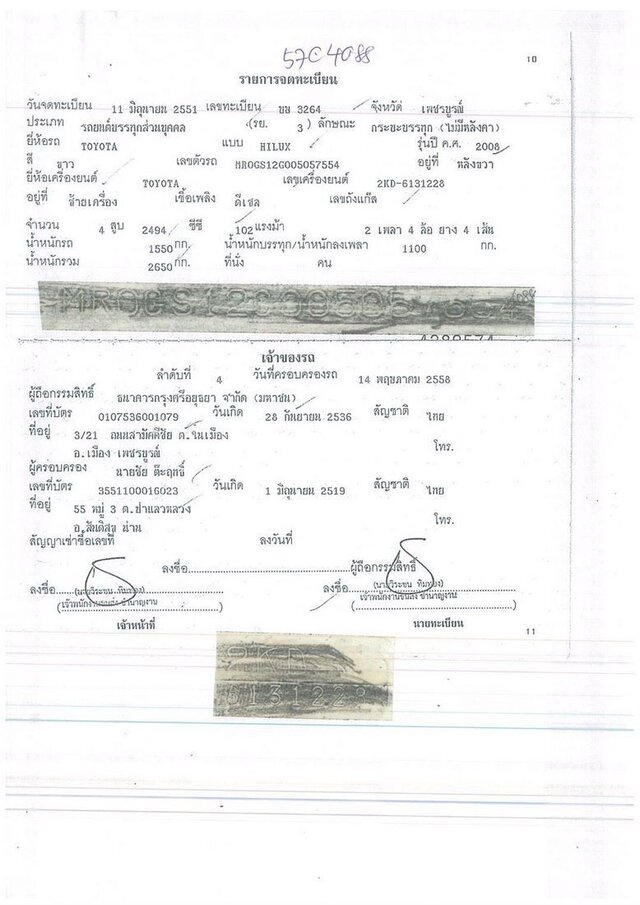 57C4088
10
รายการจดทะเบียน
วันจดทะเบียน 11 มิถุนายน 2551 เลขทะเบียน บบ 3264 จังหวัด เพชรบูรณ์
ประเภท รถยนต์บรรทุกส่วนบุคคล (รย. 3) ลักษณะ กระบะบรรทุก (ไม่มีหลังคา)
ยี่ห้อรถ TOYOTA แบบ HILUX รุ่นปี ค.ศ. 2008
สี ขาว เลขตัวรถ MROGS12G005057554 อยู่ที่ หลังขวา
ยี่ห้อเครื่องยนต์ TOYOTA เลขเครื่องยนต์ 2KD-6131228
อยู่ที่ ซ้ายเครื่อง เชื้อเพลิง ดีเซล เลขถังแก๊ส
จำนวน 4 สูบ 2494 ซีซี 102 แรงม้า 2 เพลา 4 ล้อ ยาง 4 เส้น
น้ำหนักรถ 1550 กก. น้ำหนักบรรทุก/น้ำหนักลงเพลา 1100 กก.
น้ำหนักรวม 2650 กก. ที่นั่ง คน
เจ้าของรถ
ลำดับที่ 4 วันที่ครอบครองรถ 14 พฤษภาคม 2558
ผู้ถือกรรมสิทธิ์ ธนาคารกรุงศรีอยุธยา จำกัด (มหาชน)
เลขที่บัตร 0107536001079 วันเกิด 28 กันยายน 2536 สัญชาติ ไทย
ที่อยู่ 3/21 ถนนสามัคคีชัย ต.ในเมือง
อ.เมือง เพชรบูรณ์ โทร.
ผู้ครอบครอง นายชัย ต๊ะฤทธิ์
เลขที่บัตร 3551100016023 วันเกิด 1 มิถุนายน 2519 สัญชาติ ไทย
ที่อยู่ 55 หมู่ 3 ต.ป่าแลวหลวง
อ.สันติสุข น่าน โทร.
สัญญาเช่าซื้อเลขที่ ลงวันที่
ลงชื่อ ผู้ถือกรรมสิทธิ์
ลงชื่อ ลงชื่อ
(เจ้าพนักงานขนส่ง ชำนาญงาน) เจ้าพนักงานขนส่ง ชำนาญงาน
เจ้าหน้าที่ นายทะเบียน
11
2KD
6131228